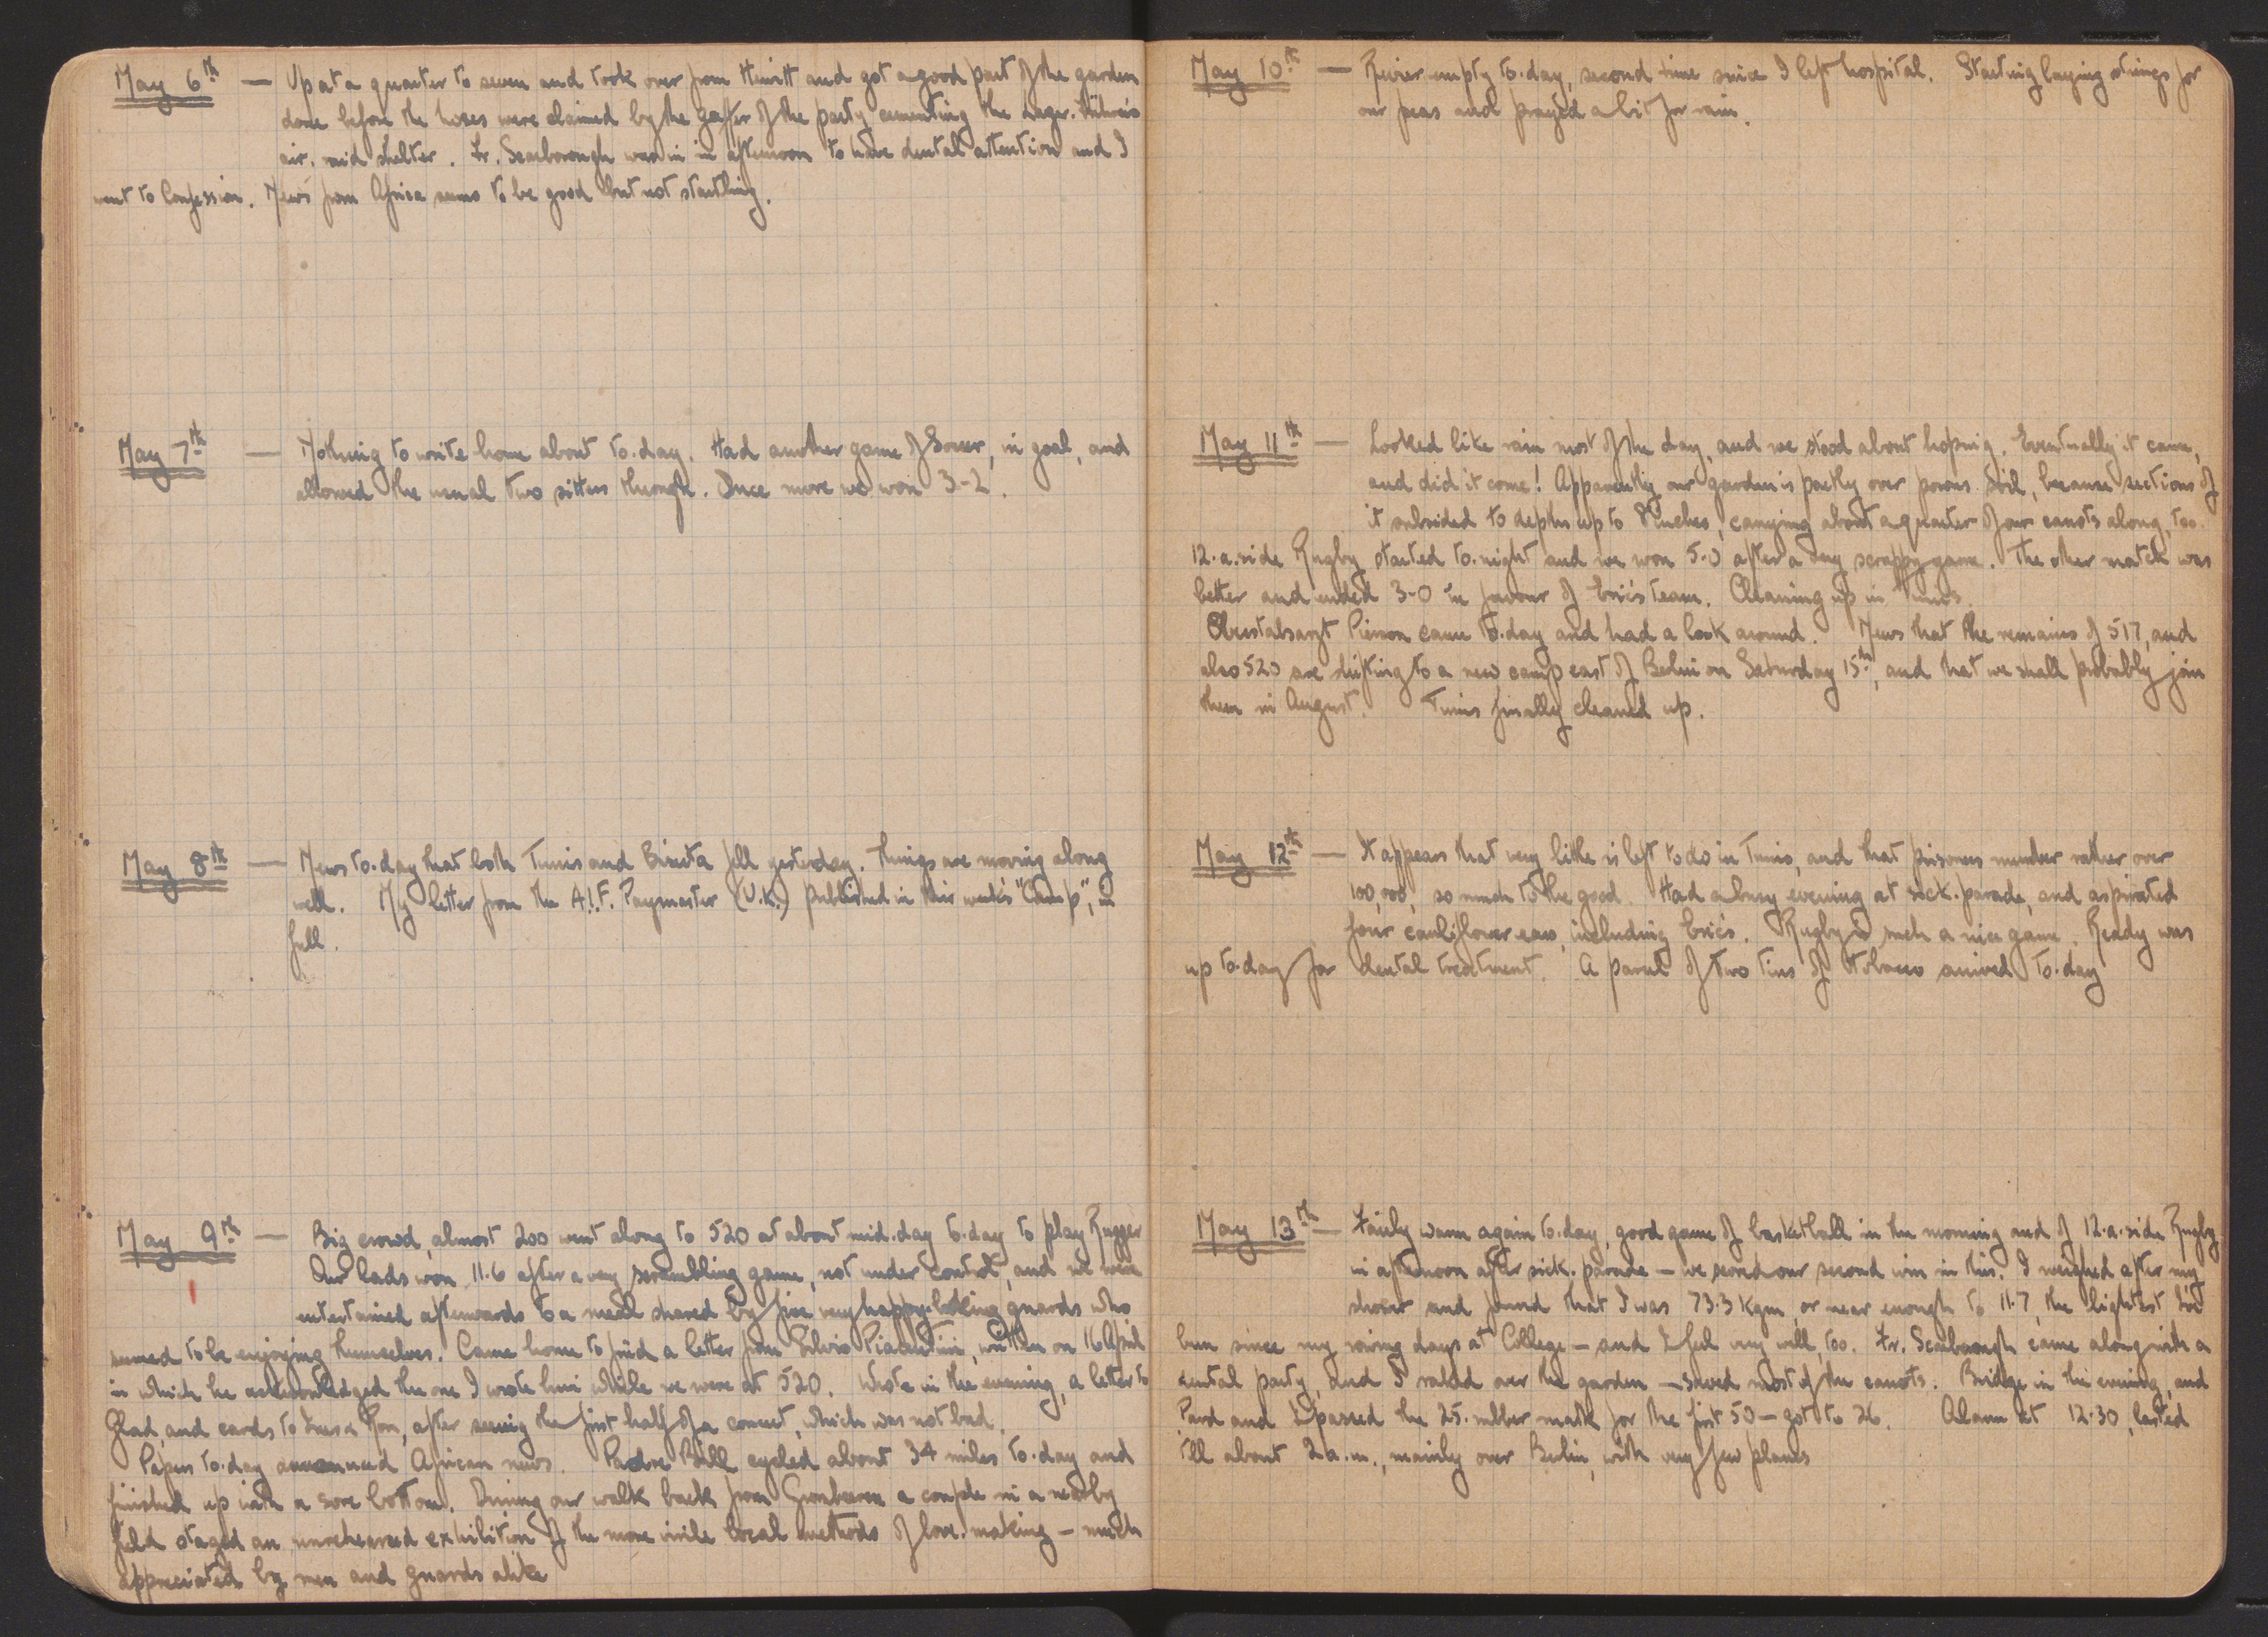 May 6th — Up at a quarter to seven and took over from Hewitt and got a good part of the garden
done before the hoses were claimed by the gaffer of the party cementing the Lager-Führer's
air-raid shelter. Fr. Scarborough was in in afternoon to have dental attention and I
went to Confession. News from Africa seems to be good but not startling.
May 7th — Nothing to write home about to-day. Had another game of Soccer, in goal, and
allowed the usual two sitters through. Once more we won 3-2.
May 8th — News to-day that both Tunis and Bizerta fell yesterday. Things are moving along
well. My letter from the A.I.F. Paymaster (U.K.) published in this week's "Camp", in
full.
May 9th — Big crowd, almost 200 went along to 520 at about mid-day to-day to play Rugger
Our lads won 11-6 after a very scrambling game, not under control, and we were
entertained afterwards to a meal shared by five very happy-looking guards who
seemed to be enjoying themselves. Came home to find a letter from Silvio Piacentini, written on 16 April
in which he acknowledged the one I wrote him while we were at 520. Wrote in the evening, a letter to
Glad, and cards to & Ron, after seeing the first half of a concert, which was not bad.
Papers to-day announced African news. Padre Bill cycled about 34 miles to-day and
finished up with a sore bottom. During our walk back from a couple in a nearby
field staged an unrehearsed exhibition of the more virile local methods of love-making — much
appreciated by men and guards alike
May 10th — Revier empty to-day, second time since I left hospital. Starting laying strings for
our peas and prayed a bit for rain.
May 11th — Looked like rain most of the day, and we stood about hoping. Eventually it came,
and did it come! Apparently our garden is partly over porous soil, because sections of
it subsided to depths up to 8 inches, carrying about a quarter of our carrots along, too.
12-a-side Rugby started to-night and we won 5-0 after a very scrappy game. The other match was
better and ended 3-0 in favour of Eric's team. Cleaning up in Tunis.
Oberstabsarzt came to-day and had a look around. News that the remains of 517, and
also 520 are shifting to a new camp east of Berlin on Saturday 15th, and that we shall probably join
them in August. Tunis finally cleaned up.
May 12th — It appears that very little is left to do in Tunis, and that prisoners number rather over
100,000, so much to the good. Had a busy evening at sick-parade, and aspirated
four cauliflower ears, including Eric's. Rugby is such a nice game. Reddy was
up to-day for dental treatment. A parcel of two tins of tobacco arrived to-day
May 13th — Fairly warm again to-day, good game of basketball in the morning and of 12-a-side Rugby
in afternoon after sick-parade — we scored our second win in this. I weighed after my
shower and found that I was 73.3 Kgm, or near enough to 11.7, the lightest I've
been since my rowing days at College — and I feel very well, too. Fr. Scarborough came along with a
dental party, and I raked over the garden — saved most of the carrots. Bridge in the evening, and
and I passed the 25-rubber mark for the first 50 — got to 26. Alarm at 12.30, lasted
till about 2 a.m., mainly over Berlin, with very few planes